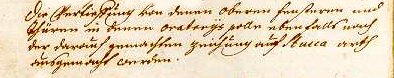 Die Vertieffung von denen oberen fensteren und
thüren in denen oratorijs solle ebenfalls nach
der darauf gemachten zeichnung auf Stucca arth
ausgemacht werden.